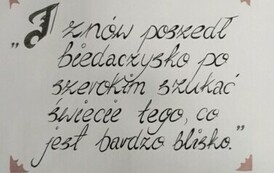 „I znów poszedł
biedaczysko po
szerokim szukać
świecie tego, co
jest bardzo blisko."